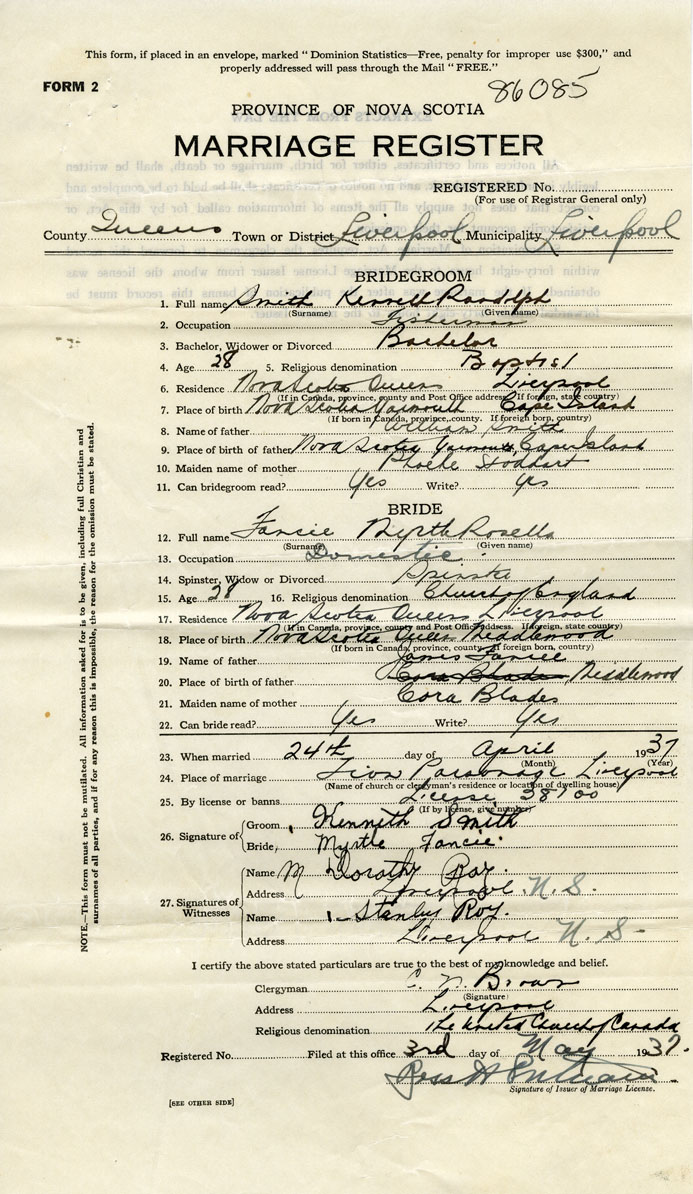 This form, if placed in an envelope, marked "Dominion Statistics—Free, penalty for improper use $300," and
properly addressed will pass through the Mail "FREE."
FORM 2
86085
PROVINCE OF NOVA SCOTIA
MARRIAGE REGISTER
REGISTERED No.
(For use of Registrar General only)
County Queens Town or District Liverpool Municipality Liverpool
BRIDEGROOM
1. Full name Smith Randolph
(Surname) (Given name)
2. Occupation Fisherman
3. Bachelor, Widower or Divorced Bachelor
4. Age 28 5. Religious denomination Baptist
6. Residence Nova Scotia Queens Liverpool
(If in Canada, province, county and Post Office address. If foreign, state country)
7. Place of birth Nova Scotia Yarmouth Cape Island
(If born in Canada, province, county. If foreign born, country)
8. Name of father William Smith
9. Place of birth of father Nova Scotia Cape Island
10. Maiden name of mother Phoebe Stoddart
11. Can bridegroom read? Yes Write? Yes
BRIDE
12. Full name Fancie Myrtle Rosella
(Surname) (Given name)
13. Occupation Domestic
14. Spinster, Widow or Divorced Spinster
15. Age 28 16. Religious denomination Church of England
17. Residence Nova Scotia Queens Liverpool
(If in Canada, province, county and Post Office address. If foreign, state country)
18. Place of birth Nova Scotia Queens Middlewood
(If born in Canada, province, county. If foreign born, country)
19. Name of father James Fancie
20. Place of birth of father Cora Blades Middlewood
21. Maiden name of mother Cora Blades
22. Can bride read? Yes Write? Yes
23. When married 24th day of April 1937
(Month) (Year)
24. Place of marriage Zion Parsonage Liverpool
(Name of church or clergyman's residence or location of dwelling house)
25. By license or banns License 38700
(If by license, give number)
26. Signature of
Groom, Kenneth Smith
Bride, Myrtle Fancie
27. Signatures of Witnesses
Name M Dorothy Roy.
Address Liverpool N.S.
Name 1. Stanley Roy.
Address Liverpool N.S.
I certify the above stated particulars are true to the best of my knowledge and belief.
Clergyman C. N. Brown
(Signature)
Address Liverpool
Religious denomination The United Church of Canada
Registered No. Filed at this office 3rd day of May 1937.
Signature of Issuer of Marriage License.
[SEE OTHER SIDE]
NOTE.—This form must not be mutilated. All information asked for is to be given, including full Christian and
surnames of all parties, and if for any reason this is impossible, the reason for the omission must be stated.